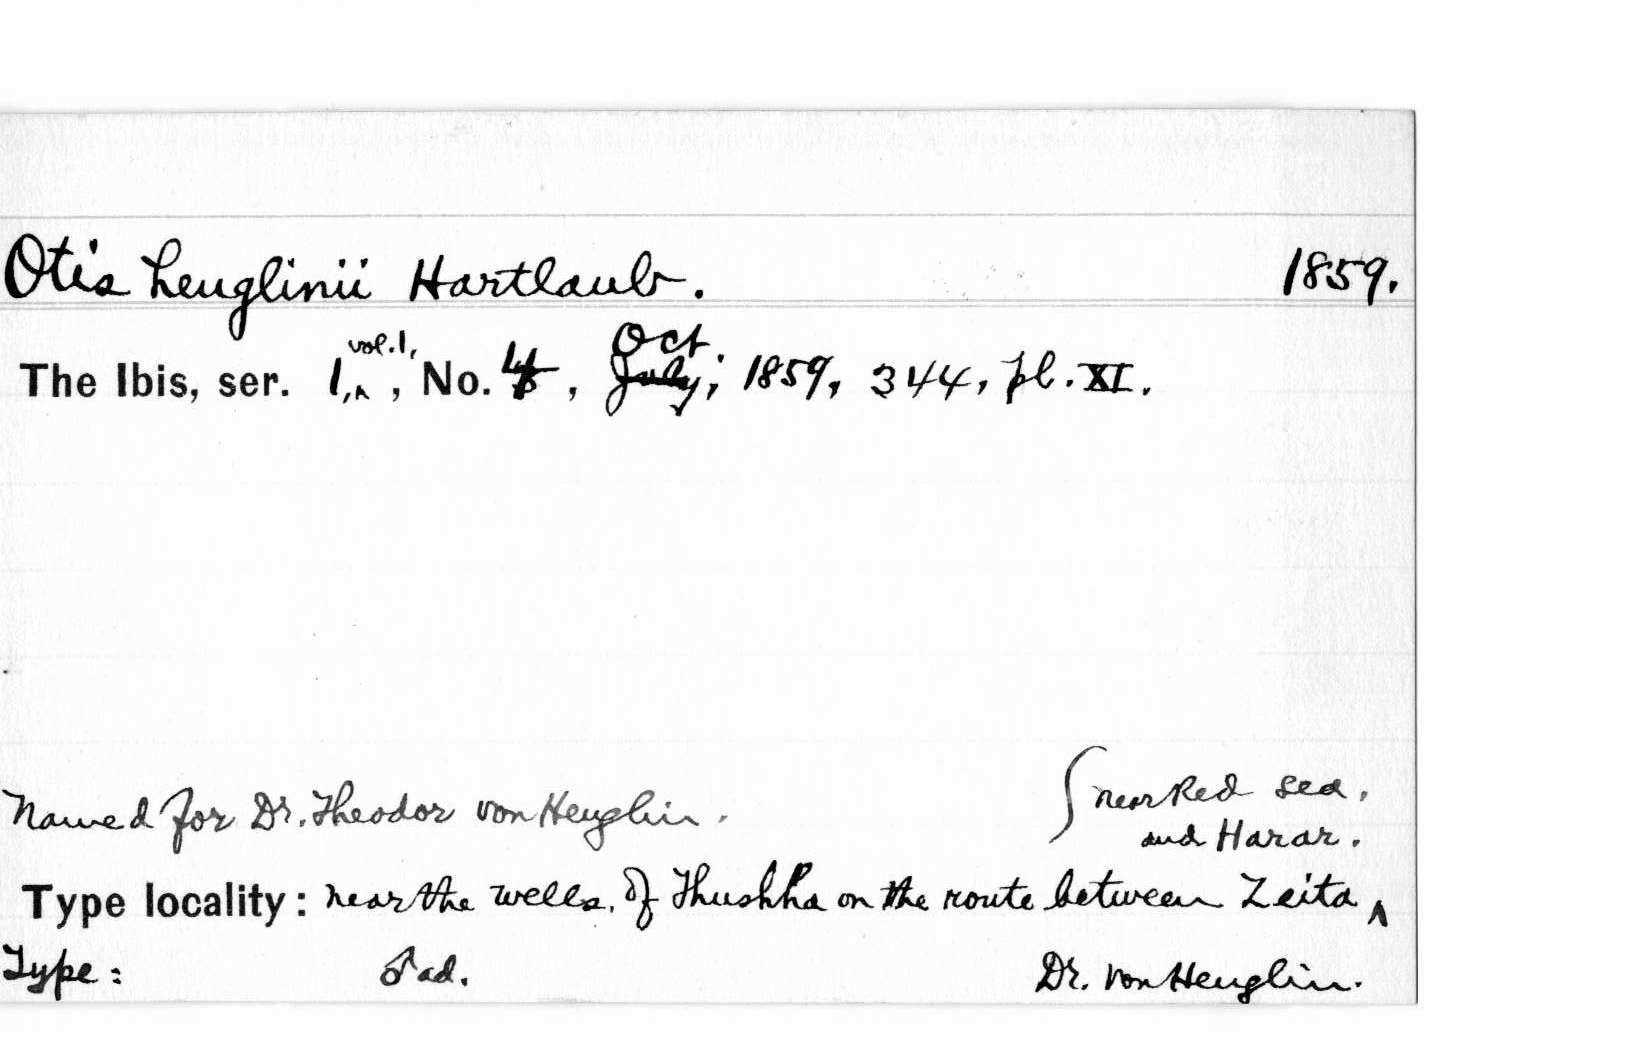 Otis heuglinii Hartlaub. 1859.
The Ibis, ser. 1, vol. 1, , No. 4, Oct. July, 1859, 344, pl. XI.
Named for Dr. Theodor von Heuglin.
near Red Sea.
and Harar.
Type locality: near the wells, of Thushha on the route between Zeita
Type: ♂ ad. Dr. von Heuglin.